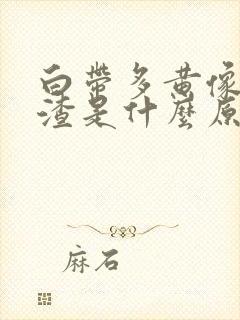 白带多黄像
渣是什麼原
麻石